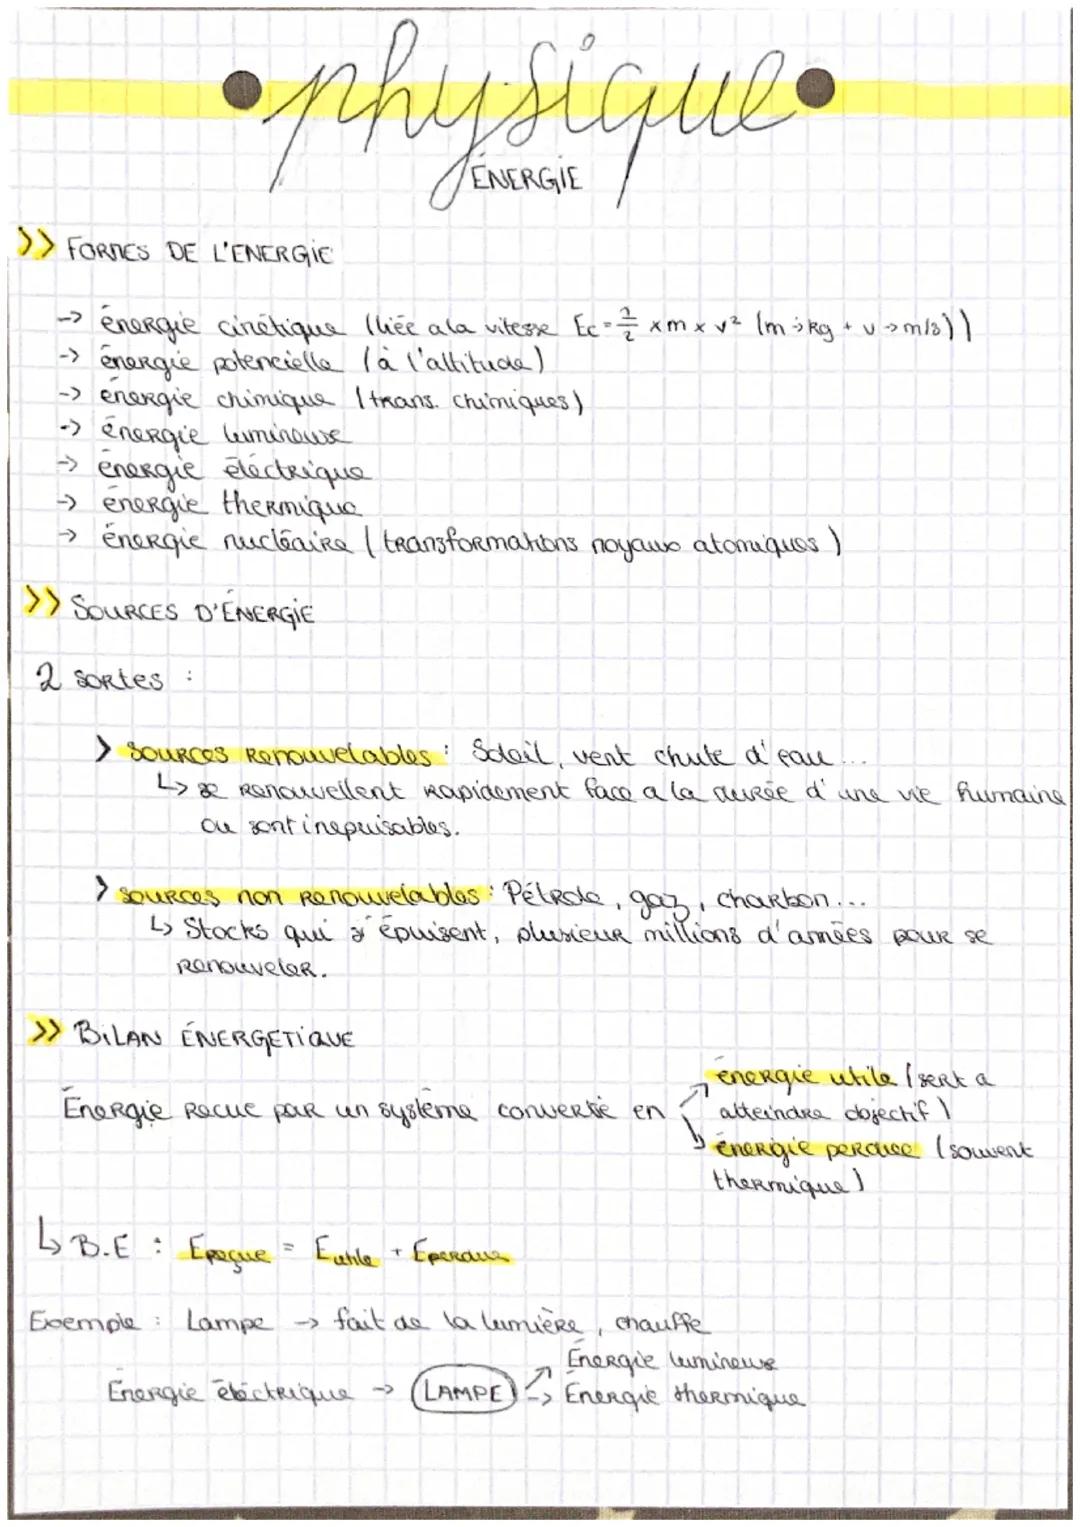 physique
ÉNERGIE
>> FORMES DE L'ENERGIE
-> énergie cinétique (liée a la vitesse Ec = 1/2 x m x v² (m -> kg + v -> m/s))
-> énergie potencielle (à l'altitude)
-> énergie chimique (trans. chimiques)
-> énergie lumineuse
-> énergie éléctrique
-> énergie thermique
-> énergie nucléaire (transformations noyaux atomiques)
>> SOURCES D'ÉNERGIE
2 sortes :
> sources renouvelables : Soleil, vent chute d'eau...
↳ se renouvellent rapidement face a la durée d'une vie humaine
ou sont inepuisables.
> sources non renouvelables : Pétrole, gaz, charbon...
↳ Stocks qui s'épuisent, plusieur millions d'années pour se
renouveler.
>> BILAN ÉNERGETIQUE
énergie utile (sert a
Énergie recue par un système convertie en
atteindre objectif)
énergie perdue (souvent
thermique)
↳ B.E : Ereçue = Eutile + Eperdue
Exemple : Lampe -> fait de la lumière, chauffe
Énergie lumineuse
Énergie éléctrique -> LAMPE -> Énergie thermique